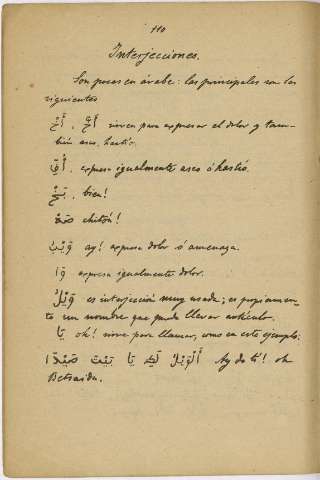 110
Interjecciones.
Son pocas en árabe: las principales son las
siguientes
أَخْ, أَحْ sirven para expresar el dolor y tam-
bién asco, hastío.
أُفّ, expresa igualmente asco ó hastío.
بَخْ, bien!
صَهْ chitón!
وَيْبَ ay! expresa dolor ó amenaza.
وَا expresa igualmente dolor.
وَيْلٌ es interjección muy usada; es propiamen-
te un nombre que puede llevar artículo.
يَا oh! sirve para llamar, como en este ejemplo:
أَلْوَيْلُ لَكِ يَا بَيْتَ صَيْدَا Ay de ti! oh
Betsaida.